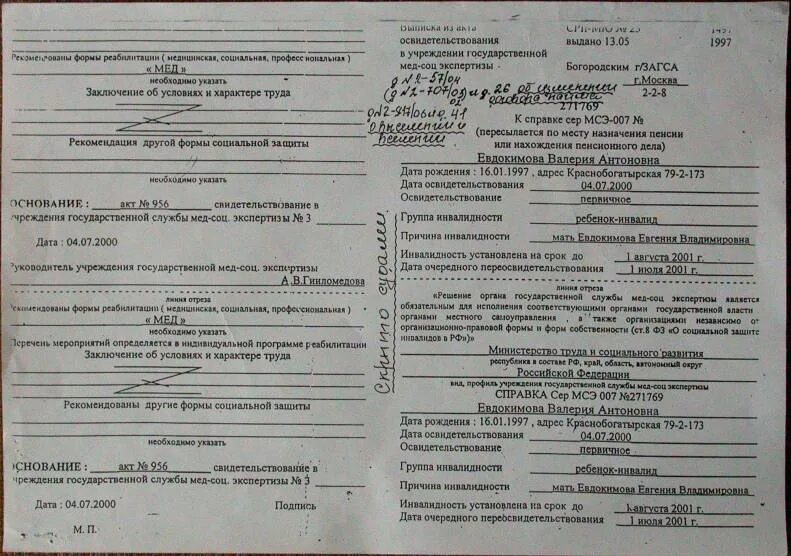 Рекомендованы формы реабилитации ( медицинская, социальная, профессиональная )
« МЕД »
необходимо указать
Заключение об условиях и характере труда
Рекомендация другой формы социальной защиты
необходимо указать
ОСНОВАНИЕ : акт № 956 свидетельствование в
учреждения государственной службы мед-соц. экспертизы № 3
Дата : 04.07.2000
Руководитель учреждения государственной мед-соц. экспертизы
А.В.Гииломедова
линия отреза
Рекомендованы формы реабилитации ( медицинская, социальная, профессиональная )
« МЕД »
необходимо указать
Перечень мероприятий определяется в индивидуальной программе реабилитации
Заключение об условиях и характере труда
Рекомендованы другие формы социальной защиты
необходимо указать
ОСНОВАНИЕ : акт № 956 свидетельствование в
учреждения государственной службы мед-соц. экспертизы № 3
Дата : 04.07.2000 Подпись
М. П.
Скрыто судами.
Выписка из акта
освидетельствования
в учреждении государственной
мед-соц экспертизы
1997
выдано 13.05 1997
Богородским г/ЗАГСА
г.Москва
2-2-8
д N2-57/04
(д N2-707/03) л.д. 26 об изменении
271769
д N2-217/06 л.д. 41
О выселении и
вселении
К справке сер МСЭ-007 №
(пересылается по месту назначения пенсии
или нахождения пенсионного дела)
Евдокимова Валерия Антоновна
Дата рождения : 16.01.1997 , адрес Краснобогатырская 79-2-173
Дата освидетельствования 04.07.2000
Освидетельствование первичное
Группа инвалидности ребенок-инвалид
Причина инвалидности мать Евдокимова Евгения Владимировна
Инвалидность установлена на срок до 1 августа 2001 г.
Дата очередного переосвидетельствования 1 июля 2001 г.
линия отреза
«Решение органа государственной службы мед-соц экспертизы является
обязательным для исполнения соответствующими органами государственной власти
органами местного самоуправления , а также организациями независимо от
организационно-правовой формы и форм собственности (ст.8 ФЗ «О социальной защите
инвалидов в РФ»)»
Министерство труда и социального развития
республики в составе РФ, край, область, автономный округ
Российской Федерации
вид, профиль учреждения государственной службы мед-соц экспертизы
СПРАВКА Сер МСЭ 007 №271769
Евдокимова Валерия Антоновна
Дата рождения : 16.01.1997 , адрес Краснобогатырская 79-2-173
Дата освидетельствования 04.07.2000
Освидетельствование первичное
Группа инвалидности ребенок-инвалид
Причина инвалидности мать Евдокимова Евгения Владимировна
Инвалидность установлена на срок до 1 августа 2001 г.
Дата очередного переосвидетельствования 1 июля 2001 г.